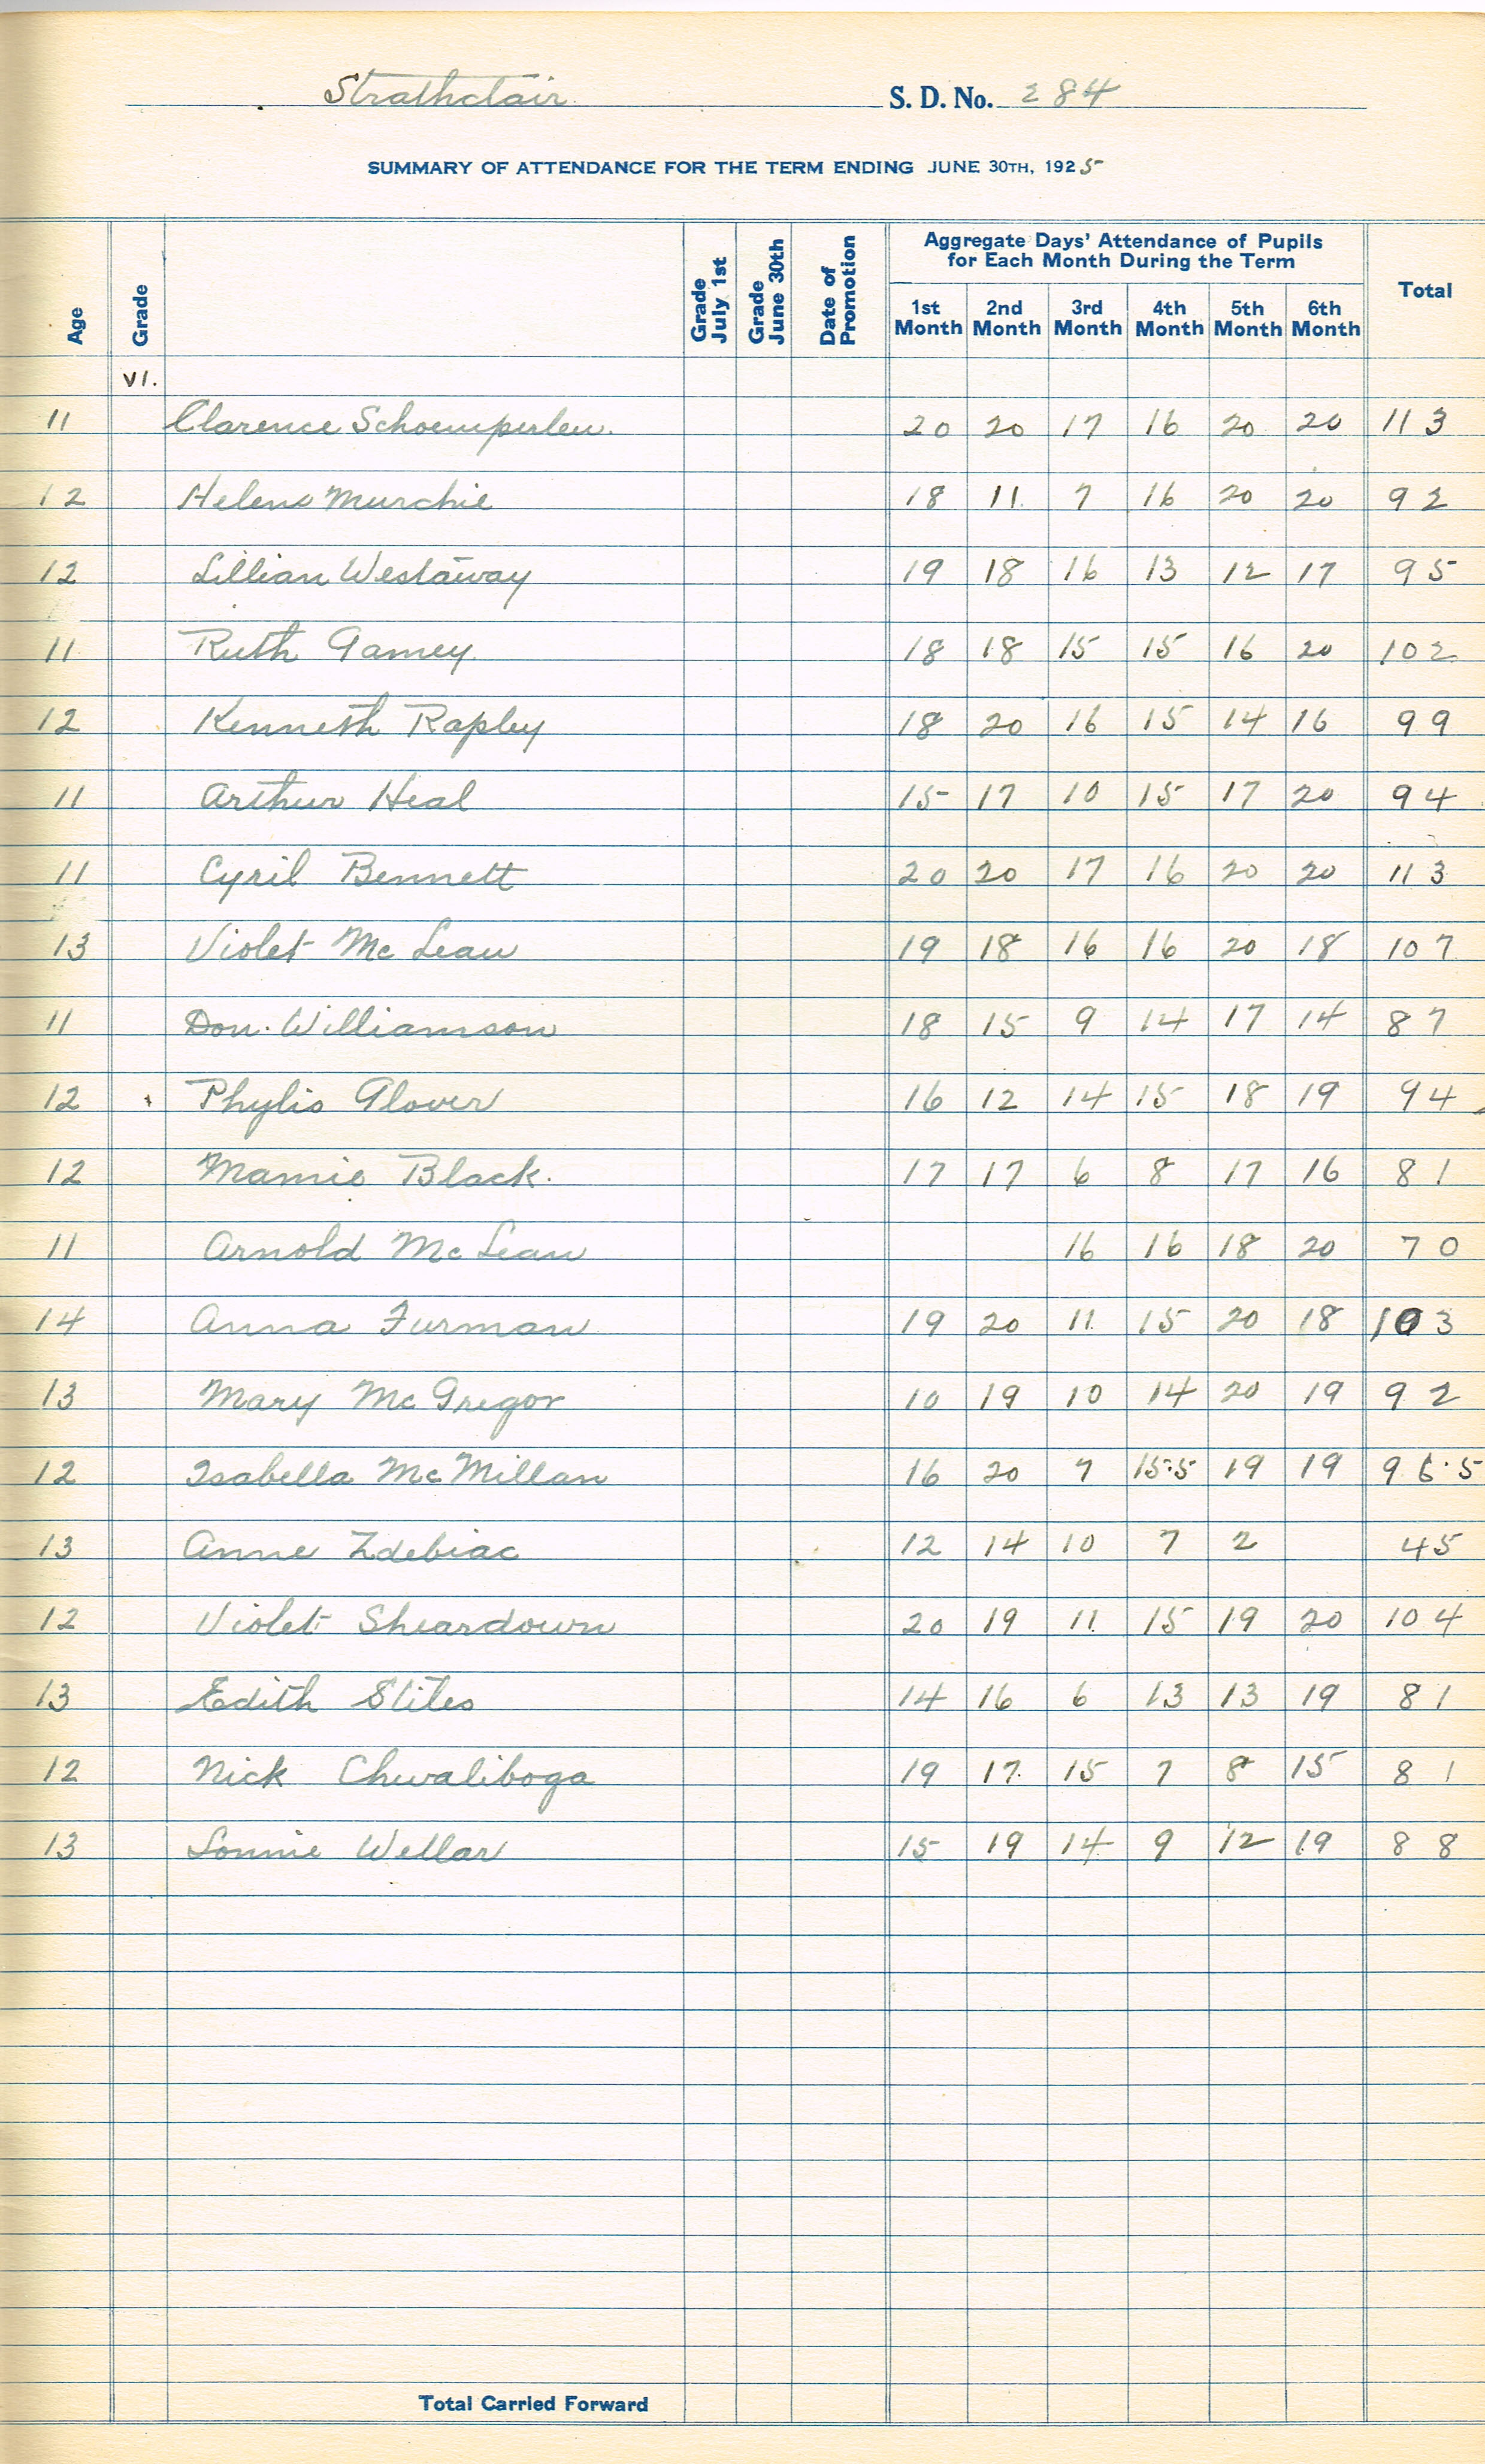 Strathclair S. D. No. 284
SUMMARY OF ATTENDANCE FOR THE TERM ENDING JUNE 30TH, 1925
Age Grade Grade July 1st Grade June 30th Date of Promotion Aggregate Days' Attendance of Pupils for Each Month During the Term Total
1st Month 2nd Month 3rd Month 4th Month 5th Month 6th Month
VI.
11 Clarence Schoemperlen. 20 20 17 16 20 20 113
12 Helene Murchie 18 11 7 16 20 20 92
12 Lillian Westaway 19 18 16 13 12 17 95
11 Ruth Gamey 18 18 15 15 16 20 102
12 Kenneth Rapley 18 20 16 15 14 16 99
11 Arthur Heal 15 17 10 15 17 20 94
11 Cyril Bennett 20 20 17 16 20 20 113
13 Violet McLean 19 18 16 16 20 18 107
11 Don. Williamson 18 15 9 14 17 14 87
12 Phylis Glover 16 12 14 15 18 19 94
12 Mamie Black. 17 17 6 8 17 16 81
11 Arnold McLean 16 16 18 20 70
14 Anna Furman 19 20 11 15 20 18 103
13 Mary McGregor 10 19 10 14 20 19 92
12 Isabella McMillan 16 20 7 15.5 19 19 96.5
13 Anne Zdebiac 12 14 10 7 2 45
12 Violet Sheardown 20 19 11 15 19 20 104
13 Edith Stites 14 16 6 13 13 19 81
12 Nick Chwaliboga 19 17 15 7 8 15 81
13 Lonnie Wellar 15 19 14 9 12 19 88
Total Carried Forward